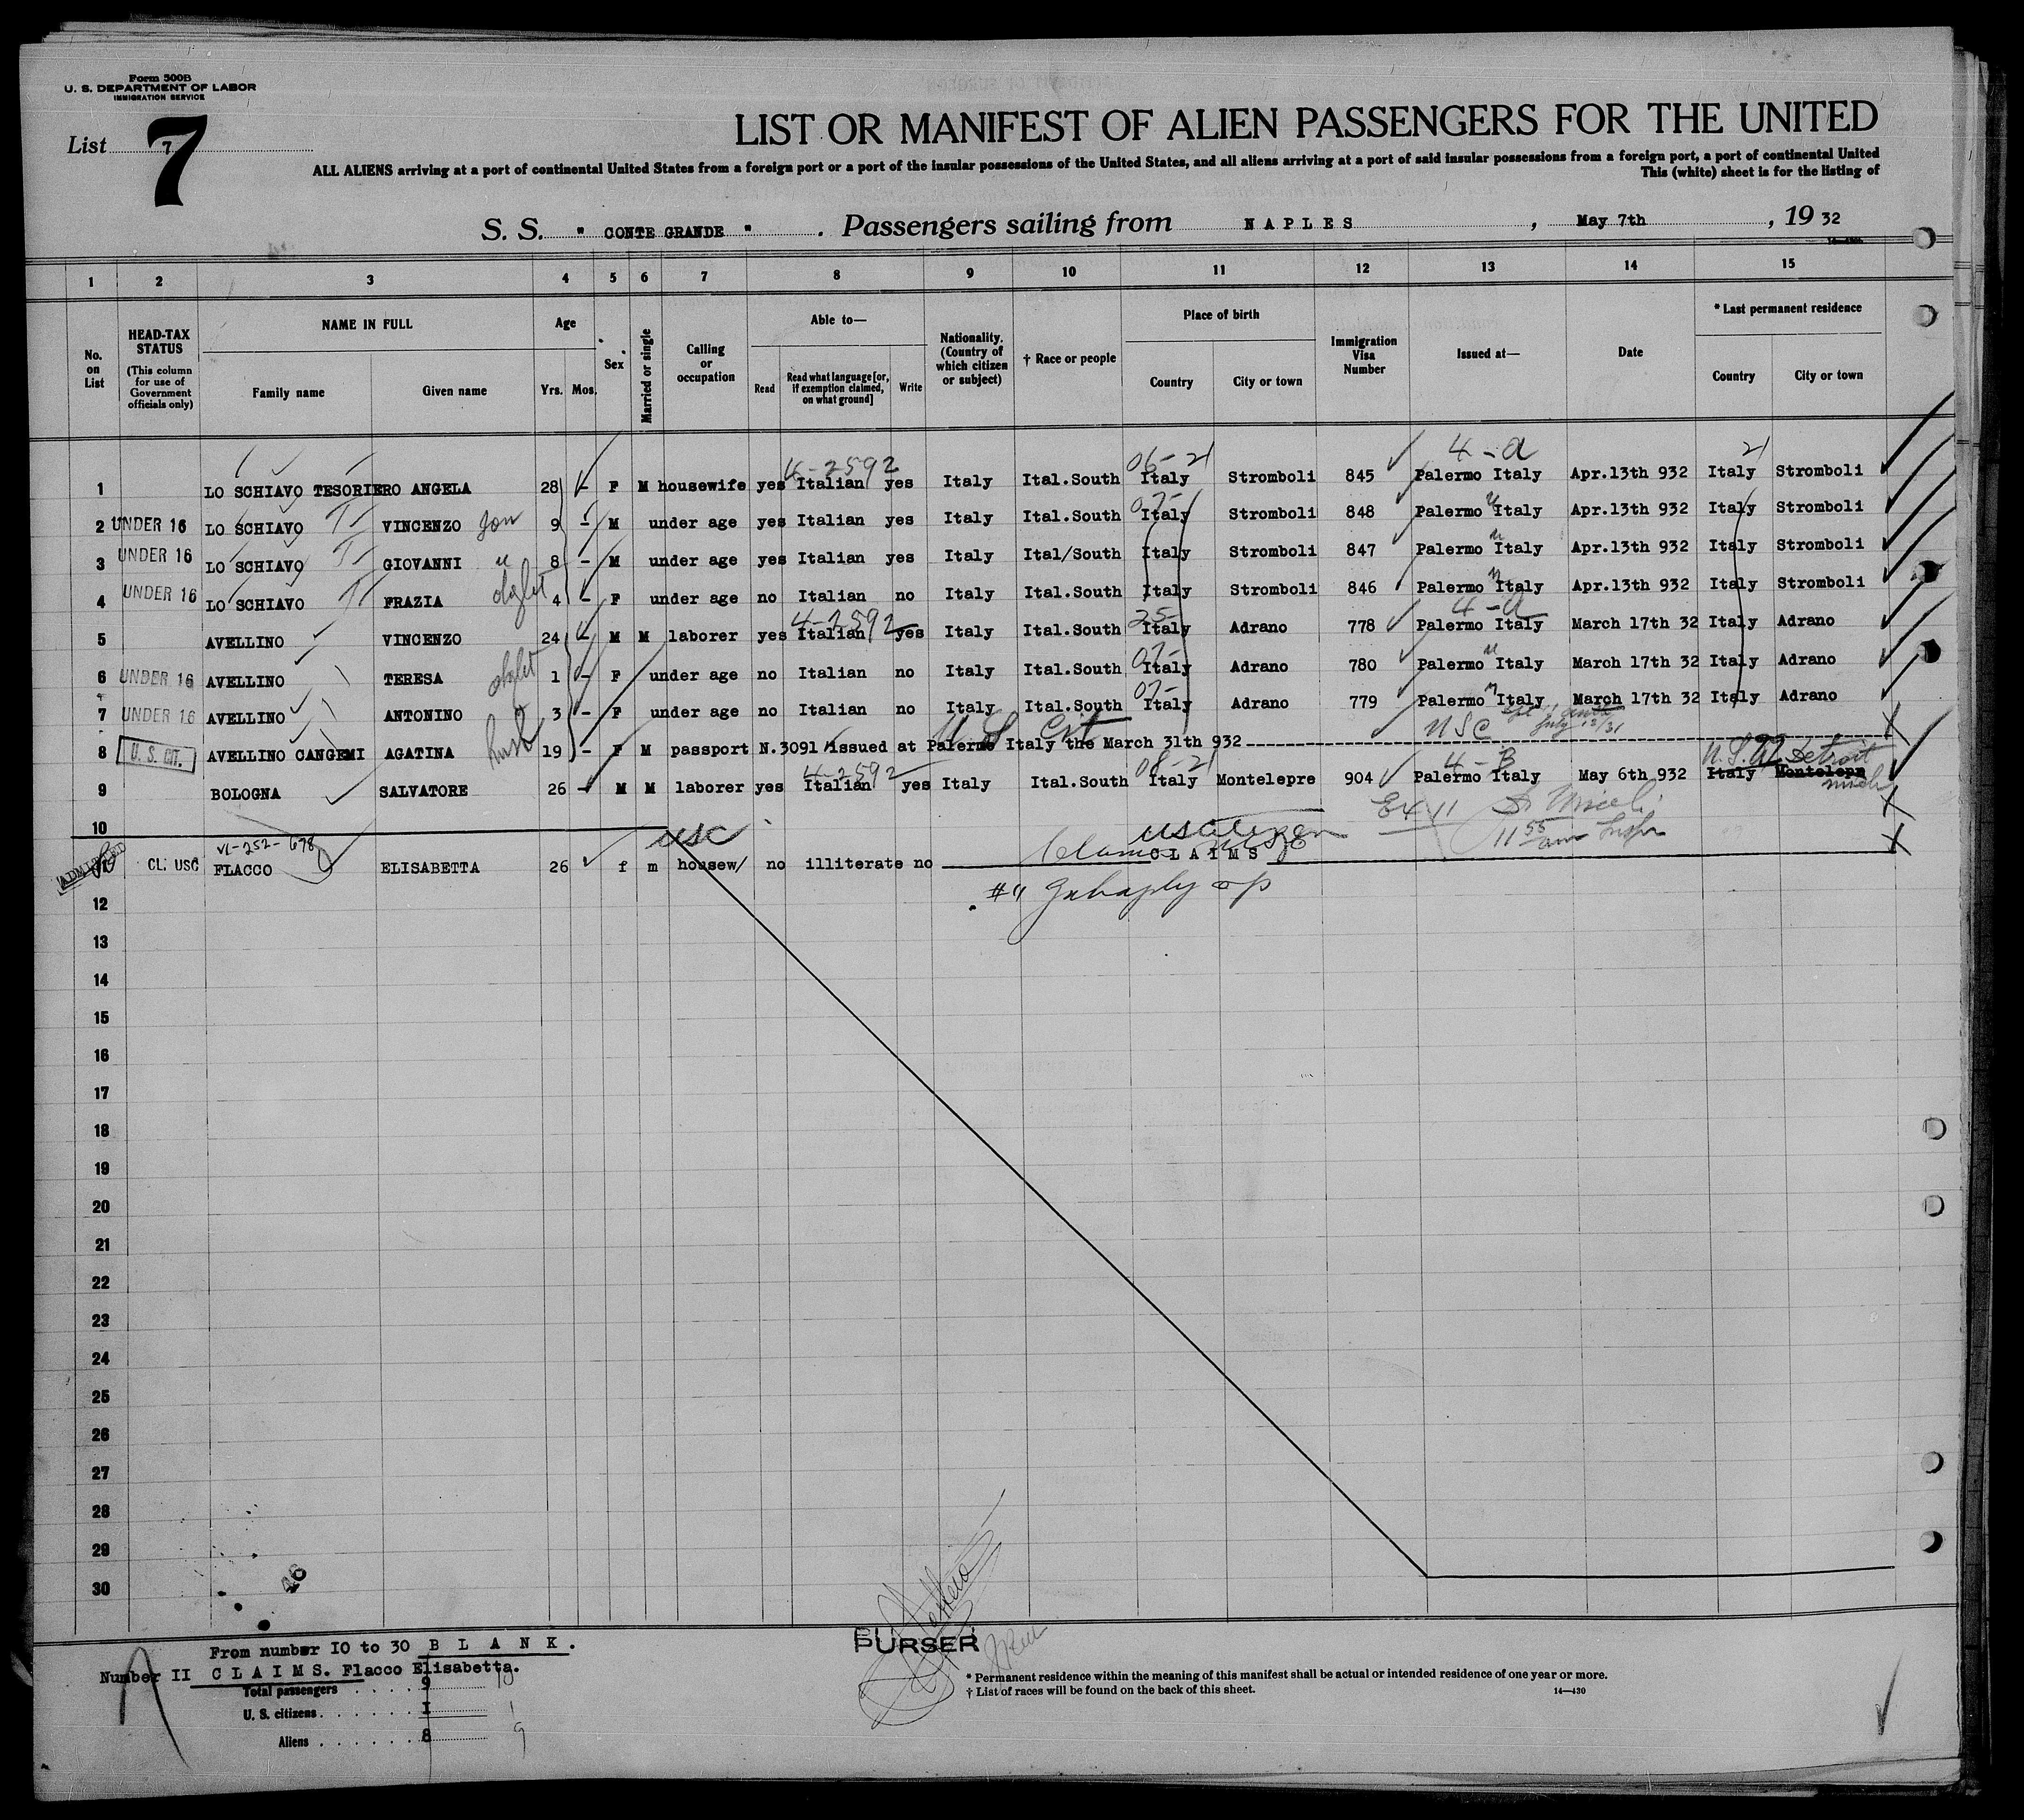 Form 500B
U. S. DEPARTMENT OF LABOR
IMMIGRATION SERVICE
List 7
7
LIST OR MANIFEST OF ALIEN PASSENGERS FOR THE UNITED
ALL ALIENS arriving at a port of continental United States from a foreign port or a port of the insular possessions of the United States, and all aliens arriving at a port of said insular possessions from a foreign port, a port of continental United
This (white) sheet is for the listing of
S. S. " CONTE GRANDE " . Passengers sailing from NAPLES , May 7th , 19 32
1 2 3 4 5 6 7 8 9 10 11 12 13 14 15
No. on List
HEAD-TAX STATUS (This column for use of Government officials only)
NAME IN FULL
Family name Given name
Age
Yrs. Mos.
Sex
Married or single
Calling or occupation
Able to—
Read Read what language [or, if exemption claimed, on what ground] Write
Nationality. (Country of which citizen or subject)
† Race or people
Place of birth
Country City or town
Immigration Visa Number
Issued at—
Date
* Last permanent residence
Country City or town
4-2592 06-21 4-a 21
1 LO SCHIAVO TESORIERO ANGELA 28 - F M housewife yes Italian yes Italy Ital.South Italy Stromboli 845 Palermo Italy Apr.13th 932 Italy Stromboli
2 UNDER 16 LO SCHIAVO VINCENZO son 9 - M under age yes Italian yes Italy Ital.South Italy Stromboli 848 Palermo Italy Apr.13th 932 Italy Stromboli
3 UNDER 16 LO SCHIAVO GIOVANNI " 8 - M under age yes Italian yes Italy Ital/South Italy Stromboli 847 Palermo Italy Apr.13th 932 Italy Stromboli
4 UNDER 16 LO SCHIAVO FRAZIA 4 - F under age no Italian no Italy Ital.South Italy Stromboli 846 Palermo Italy Apr.13th 932 Italy Stromboli
4-2592 25- 4-a
5 AVELLINO VINCENZO 24 - M M laborer yes Italian yes Italy Ital.South Italy Adrano 778 Palermo Italy March 17th 32 Italy Adrano
6 UNDER 16 AVELLINO TERESA 1 - F under age no Italian no Italy Ital.South Italy Adrano 780 Palermo Italy March 17th 32 Italy Adrano
7 UNDER 16 AVELLINO ANTONINO 3 - F under age no Italian no Italy Ital.South Italy Adrano 779 Palermo Italy March 17th 32 Italy Adrano
U S Cit USC
8 U. S. CIT. AVELLINO CANGEMI AGATINA 19 - F M passport N.3091 issued at Palermo Italy the March 31th 932
4-2592 08-21 4-B U.S.A. Detroit
9 BOLOGNA SALVATORE 26 - M M laborer yes Italian yes Italy Ital.South Italy Montelepre 904 Palermo Italy May 6th 932 Italy Montelepr
Mich
10
USC
VL-252-678
ADMITTED CL. USC FLACCO ELISABETTA 26 f m housew/ no illiterate no CLAIMS
12
13
14
15
16
17
18
19
20
21
22
23
24
25
26
27
28
29
30
From number IO to 30 BLANK.
Number II CLAIMS. Flacco Elisabetta.
Total passengers . . . . . 9 10
U. S. citizens . . . . . . I 1
Aliens . . . . . . . 8 9
PURSER
* Permanent residence within the meaning of this manifest shall be actual or intended residence of one year or more.
† List of races will be found on the back of this sheet. 14—430